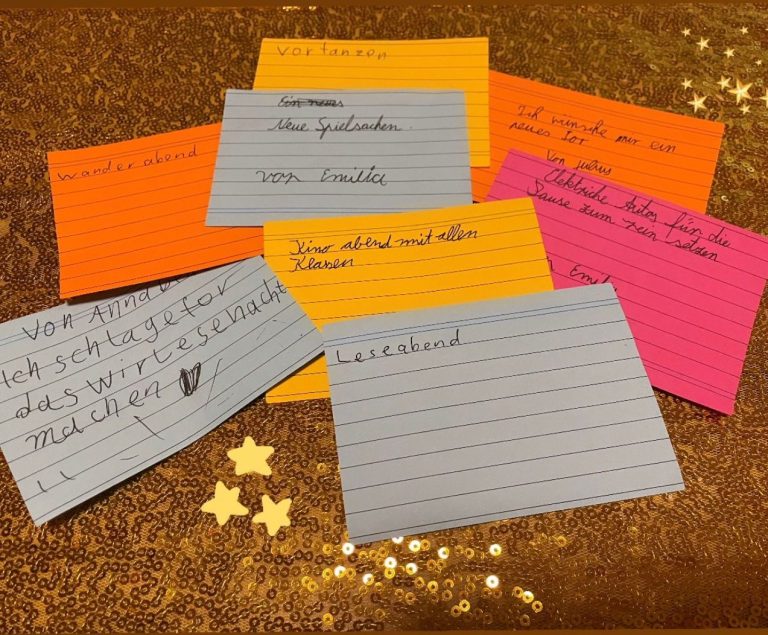 Vortanzen
Ein neues
Neue Spielsachen.
von Emilia
Ich wünsche mir ein
neues Tor
Von Julius
Wanderabend
Elektriche Autos für die
Pause zum rein setzen
Emili
Kino abend mit allen
Klassen
Von Anna
Ich schlage for
das wir Lesenacht
machen
Leseabend